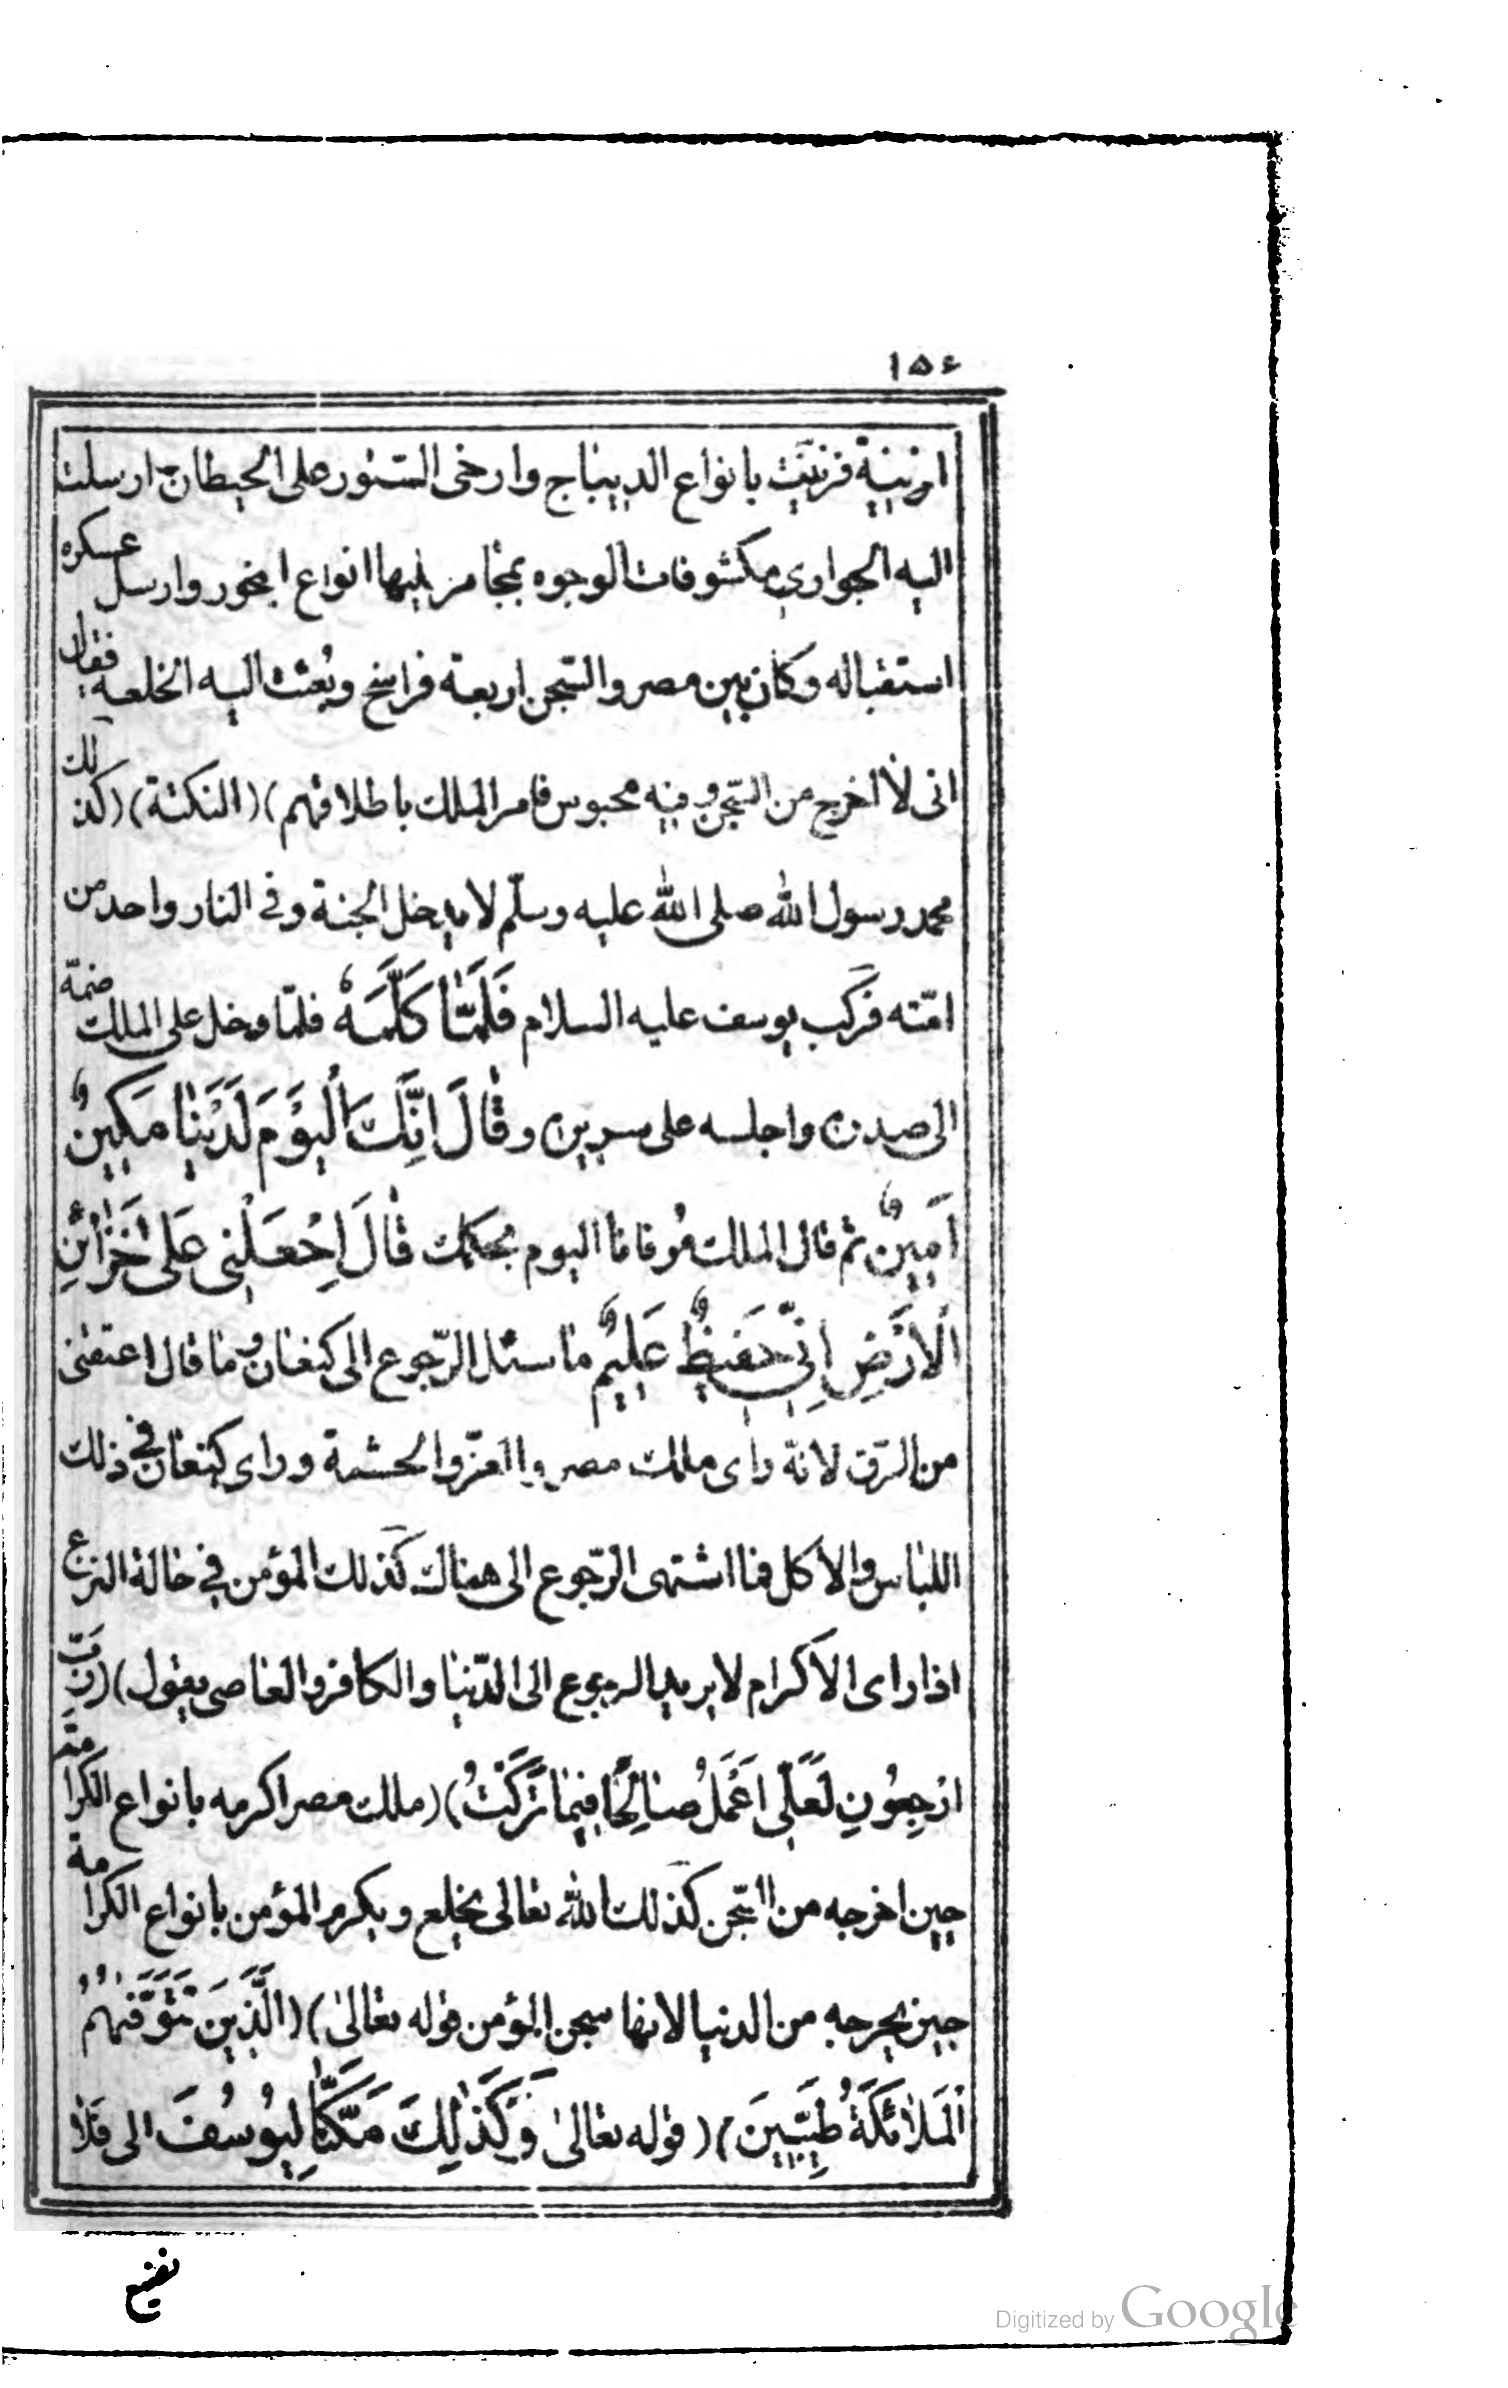 ١٥٤
ان زينة فزينت بانواع الديباج وارخى الستور على الحيطان ارسلت
اليه الجوارى مكشوفات الوجوه بمجامر فيها انواع البخور وارسل عسكره
استقباله وكان بين مصر والسّجن اربعة فراسخ وبعث اليه الخلعة فقال
انى لا اخرج من السّجن وفيه محبوس فامر الملك باطلاقهم) (النكتة) (كذلك
محمد رسول الله صلى الله عليه وسلّم لا يدخل الجنة وفى النار واحد من
امّته فركب يوسف عليه السلام فَلَمَّا كَلَّمَهُ فلمّا دخل على الملك ضمّه
الى صدره واجلسه على سريره وقَالَ اِنَّكَ الْيَوْمَ لَدَيْنَا مَكِينٌ
اَمِينٌ ثم قال الملك مُر فانا اليوم بحكمك قَالَ اجْعَلْنِى عَلَى خَزَائِنِ
الْاَرْضِ اِنِّى حَفِيظٌ عَلِيمٌ ما سئل الرّجوع الى كنعان وما قال اعتقنى
من الرّق لانّه رأى ملك مصر والعزّ والحشمة وراى كنعان فى ذلك
اللباس والاكل فما اشتهى الرّجوع الى هناك كذلك المؤمن فى حالة النزع
اذا راى الاكرام لا يريد الرجوع الى الدّنيا والكافر والعاصى يقول) (رَبِّ
ارْجِعُونِ لَعَلِّى اَعْمَلُ صَالِحًا فِيمَا تَرَكْتُ) (ملك مصر اكرمه بانواع الكرامة
حين اخرجه من السّجن كذلك الله تعالى يخلع ويكرم المؤمن بانواع الكرامة
حين يخرجه من الدنيا لانها سجن المؤمن قوله تعالى) (الَّذِينَ تَتَوَفّٰهُمُ
الْمَلَائِكَةُ طَيِّبِينَ) (قوله تعالى وَكَذٰلِكَ مَكَّنَّا لِيُوسُفَ الى فلا
نضيع
Digitized by Google